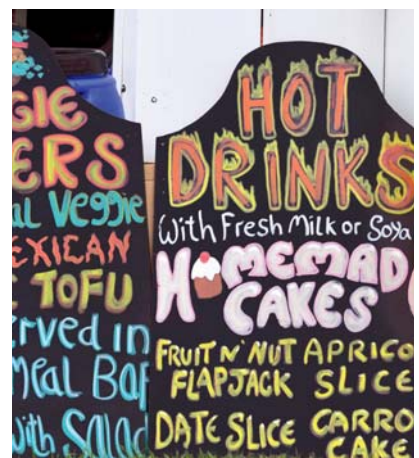 GIE
ERS
al Veggie
EXICAN
TOFU
erved in
Meal Bap
With Salad
HOT
DRINKS
With Fresh Milk or Soya
HOMEMAD
CAKES
FRUIT N' NUT APRICO
FLAPJACK SLICE
DATE SLICE CARRO
CAKE